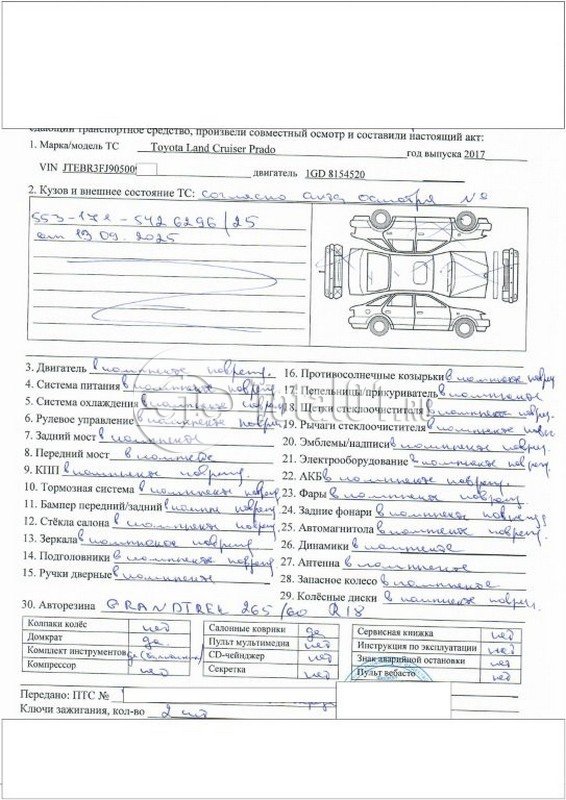 едающий транспортное средство, произвели совместный осмотр и составили настоящий акт:
1. Марка/модель ТС Toyota Land Cruiser Prado год выпуска 2017
VIN JTEBR3FJ90500 двигатель 1GD 8154520
2. Кузов и внешнее состояние ТС: согласно акта осмотра №
553-171-5426296/25
от 19.09.2025
3. Двигатель в комплекте поврежд.
4. Система питания в комплекте поврежд
5. Система охлаждения в комплекте поврежд
6. Рулевое управление в комплекте поврежд
7. Задний мост в комплекте
8. Передний мост в комплекте
9. КПП в комплекте поврежд.
10. Тормозная система в комплекте поврежд
11. Бампер передний/задний в комплекте поврежд
12. Стёкла салона в комплекте поврежд
13. Зеркала в комплекте поврежд
14. Подголовники в комплекте поврежд
15. Ручки дверные в комплекте
16. Противосолнечные козырьки в комплекте поврежд
17. Пепельницы/прикуриватель в комплекте
18. Щетки стеклоочистителя в комплекте поврежд.
19. Рычаги стеклоочистителя в комплекте поврежд
20. Эмблемы/надписи в комплекте поврежд.
21. Электрооборудование в комплекте поврежд
22. АКБ в комплекте поврежд.
23. Фары в комплекте поврежд
24. Задние фонари в комплекте поврежд
25. Автомагнитола в комплекте поврежд.
26. Динамики в комплекте
27. Антенна в комплекте
28. Запасное колесо в комплекте
29. Колёсные диски в комплекте поврежд.
30. Авторезина GRANDTREK 265/60 R18
Колпаки колёс нет
Домкрат да
Комплект инструментов да
Компрессор нет
Салонные коврики да
Пульт мультимедиа нет
CD-чейнджер нет
Секретка нет
Сервисная книжка нет
Инструкция по эксплуатации нет
Знак аварийной остановки нет
Пульт вебасто нет
Передано: ПТС №
Ключи зажигания, кол-во 2 шт